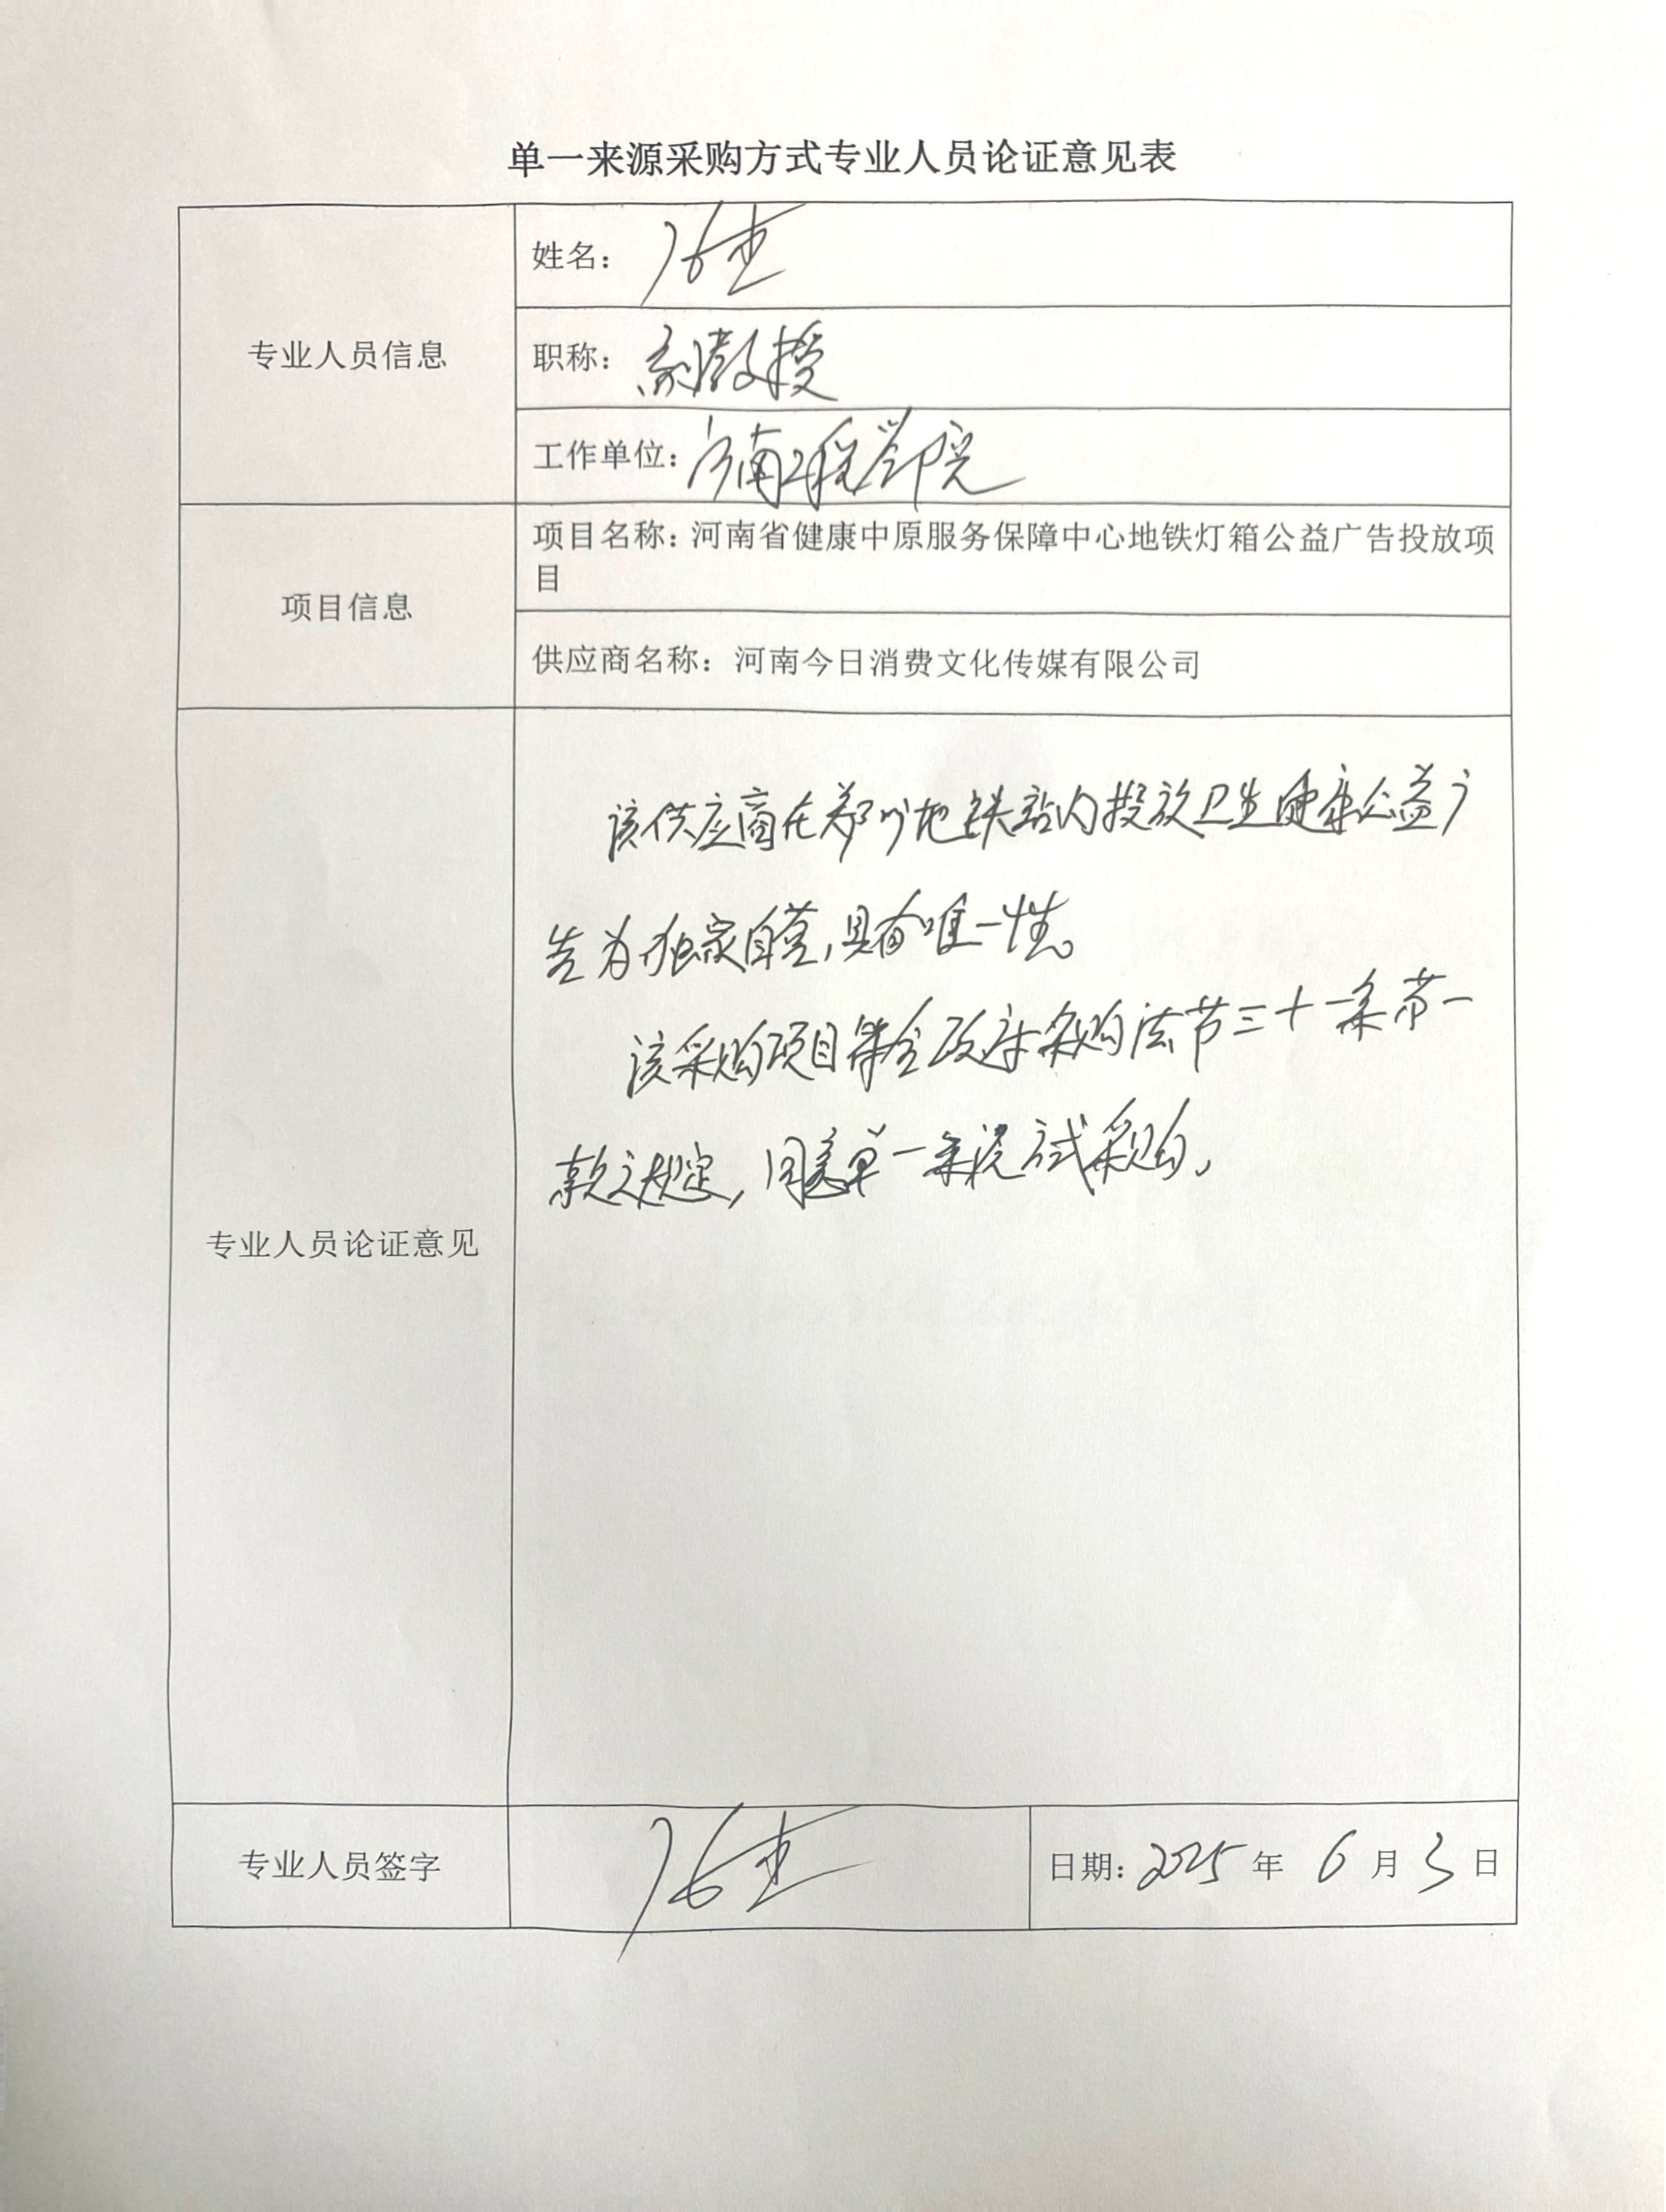 单一来源采购方式专业人员论证意见表
专业人员信息
姓名：
职称：副教授
工作单位：河南工程学院
项目信息
项目名称：河南省健康中原服务保障中心地铁灯箱公益广告投放项
目
供应商名称：河南今日消费文化传媒有限公司
专业人员论证意见
该供应商在郑州地铁站内投放卫生健康公益广
告为独家自营，具有唯一性。
该采购项目符合政府采购法第三十一条第一
款之规定，同意单一来源方式采购。
专业人员签字
日期：2025年 6月3日